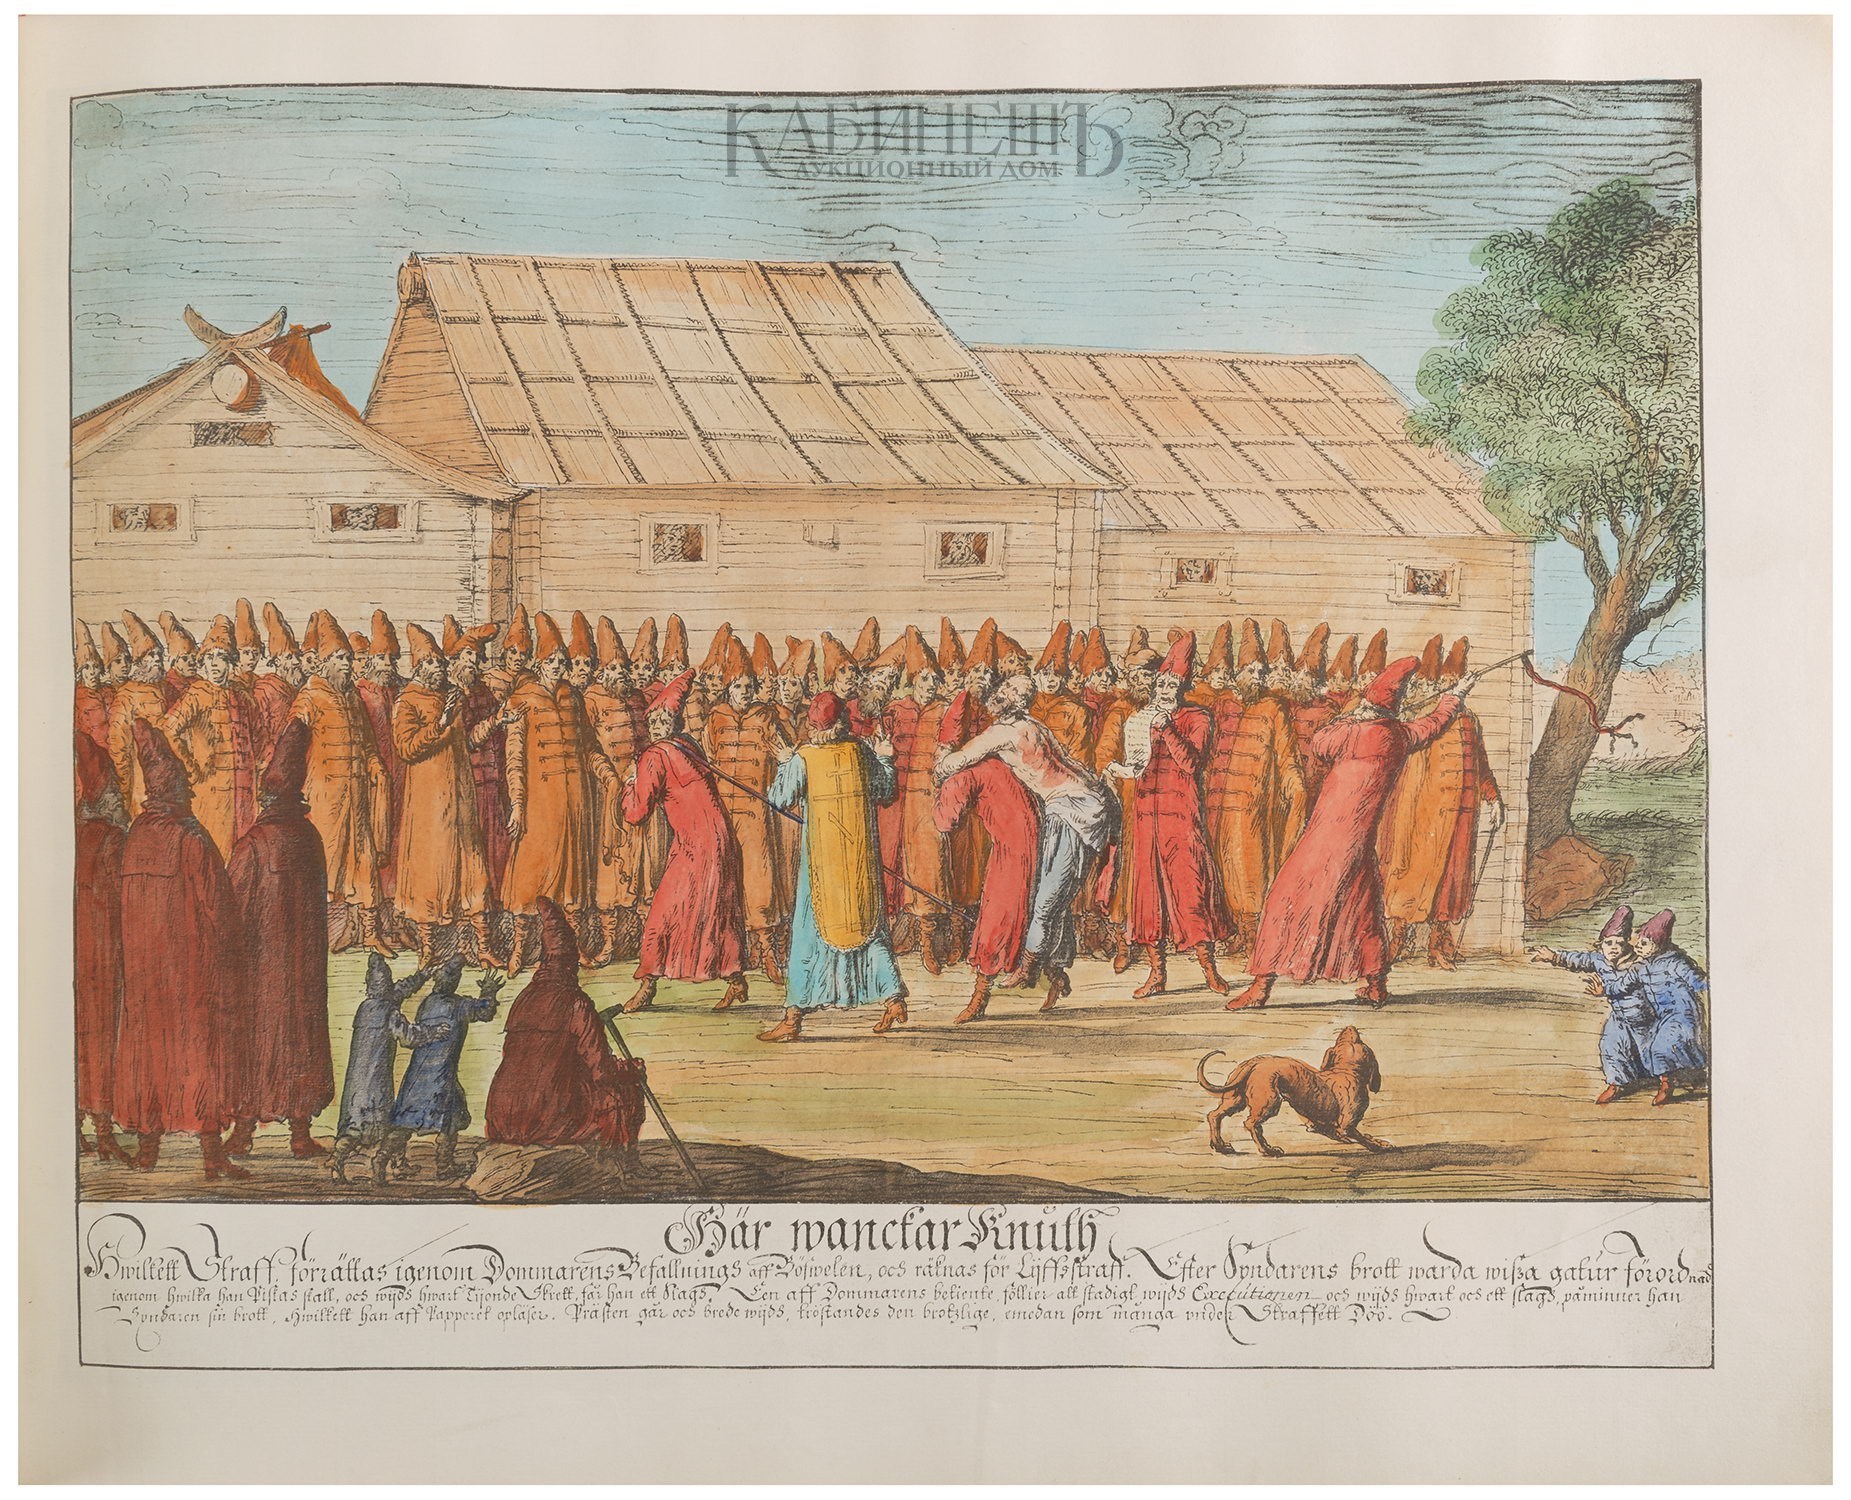 КАБИНЕТЪ
АУКЦИОННЫЙ ДОМ
Här wanckar Knuth
Hwilkett Straff, förrättas igenom Dommarens Befallnings aff Böswelen, och räknas för Lijffsstraff. Effter Syndarens brott warda wißa gatur förordnad
igenom hwilka han Piskas skall, och wijds hwart Tijonde Skrett, får han ett Slags. Een aff Dommarens betiente, föllier all stadigt wijds Executionen och wijds hwart och ett slags, påminner han
Syndaren sin brott, hwilkett han aff Papperet opläser. Prästen går och brede wijds, tröstandes den brotzlige, emedan som många under Straffett Döö.